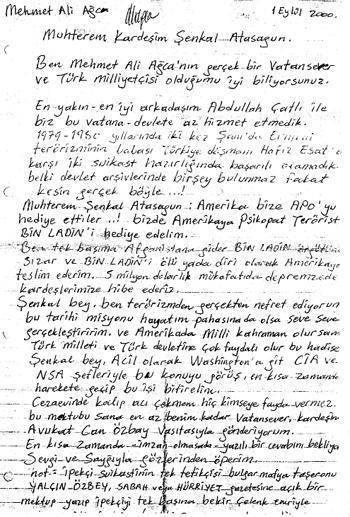 Mehmet Ali Ağca 1 Eylül 2000.
Muhterem Kardeşim Şenkal Atasagun.
Ben Mehmet Ali Ağca'nın gerçek bir Vatansever
ve Türk milliyetçisi olduğumu iyi biliyorsunuz.
En yakın-en iyi arkadaşım Abdullah Çatlı ile
biz bu vatana-devlete az hizmet etmedik.
1979-1980 yıllarında iki kez Şam'da Ermeni
terörizminin babası Türkiye düşmanı Hafız Esat'a
karşı iki suikast hazırlığında başarılı olamadık
belki devlet arşivlerinde birşey bulunmaz fakat
kesin gerçek böyle...!
Muhterem Şenkal Atasagun: Amerika bize APO'yu
hediye ettiler...! bizde Amerikaya Psikopat Terörist
BİN LADİN'i hediye edelim.
Ben tek başıma Afganistana gider BİN LADİN
sızar ve BİN LADİN'i ölü yada diri olarak Amerikaya
teslim ederim. 5 milyon dolarlık mükafatıda depremzede
kardeşlerimize hibe ederiz.
Şenkal bey, ben terörizmden gerçekten nefret ediyorum
bu tarihi misyonu hayatım pahasında olsa seve seve
gerçekleştiririm. ve Amerikada Milli kahraman olursam
Türk milleti ve Türk devletine çok faydalı olur bu hadise
Şenkal bey, Acil olarak Washington'a git CIA ve
NSA şefleriyle bu konuyu görüş, en kısa zamanda
harekete geçip bu işi bitirelim.
Cezaevinde kalıp acı çekmem hiç kimseye fayda vermez.
bu mektubu sana en az benim kadar Vatansever, kardeşim
Avukat Can Özbay vasıtasıyla gönderiyorum.
En kısa zamanda imzan olmasada yazılı bir cevabını bekliyo
Sevgi ve Saygıyla gözlerinden öperim.
not= ipekçi suikastinin tek tetikçisi bulgar mafya taşeronu
YALÇIN ÖZBEY, SABAH ve HÜRRİYET gazetesine açık bir
mektup yazıp ipekçiyi tek başına bekir Çelenk emriyle